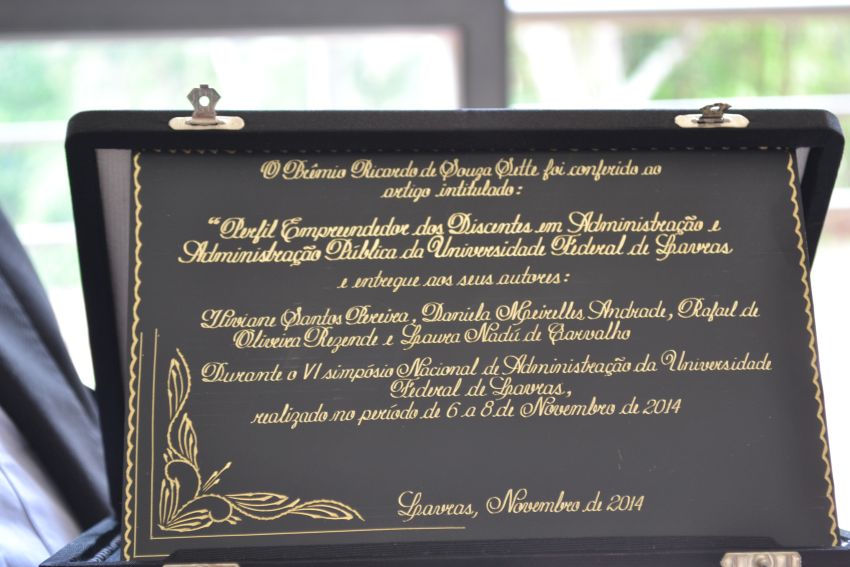 O Prêmio Ricardo de Souza Sette foi conferido ao
artigo intitulado:
"Perfil Empreendedor dos Discentes em Administração e
Administração Pública da Universidade Federal de Lavras
e entregue aos seus autores:
Viviane Santos Pereira, Daniela Meirelles Andrade, Rafael de
Oliveira Rezende e Laura Nadú de Carvalho
Durante o VI simpósio Nacional de Administração da Universidade
Federal de Lavras,
realizado no período de 6 a 8 de Novembro de 2014
Lavras, Novembro de 2014